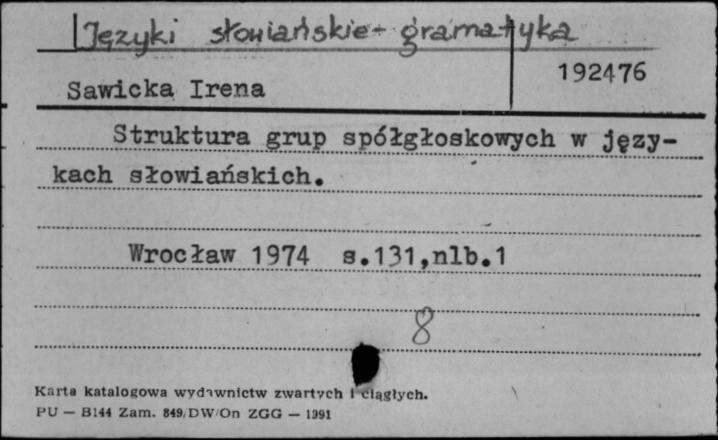 Języki słowiańskie - gramatyka
192476
Sawicka Irena
Struktura grup spółgłoskowych w języ-
kach słowiańskich.
Wrocław 1974 s.131,nlb.1
8
Karta katalogowa wydawnictw zwartych i ciągłych.
PU — B144 Zam. 849/DW/On ZGG — 1991